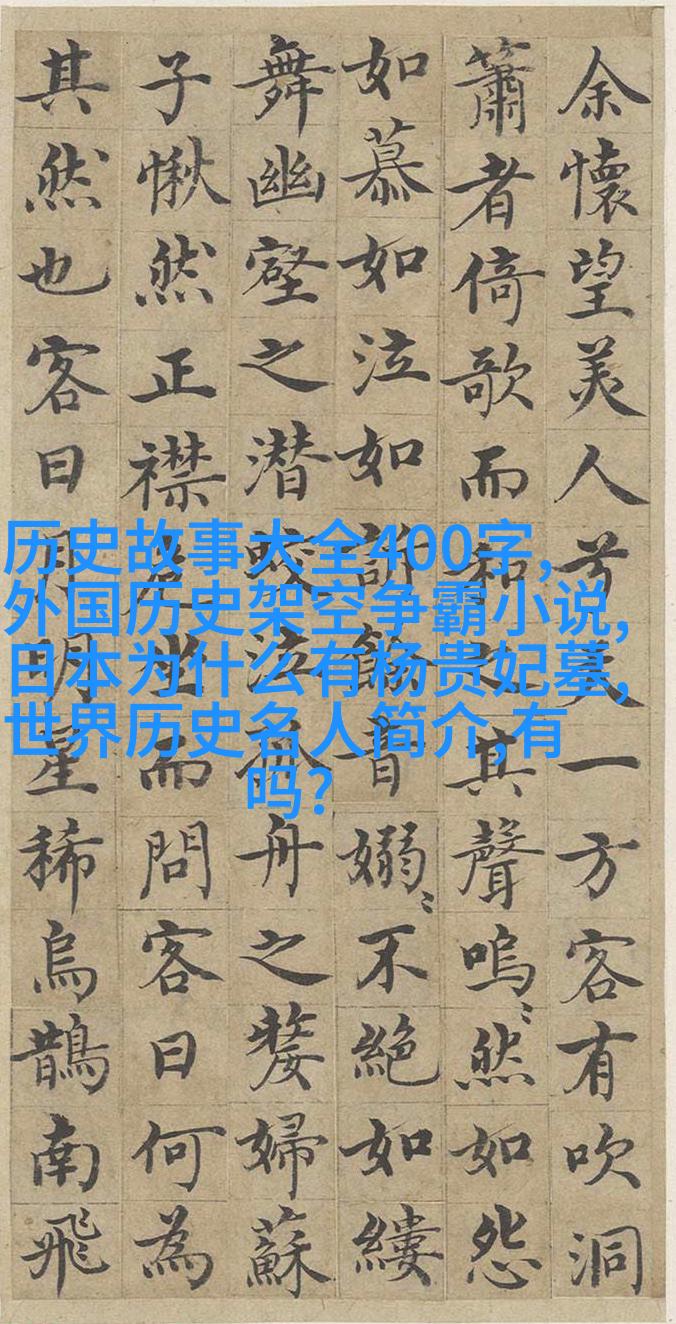 余懷望美人兮天一方客有吹洞
簫者倚歌而和之其聲嗚〻然如怨
如慕如泣如訴餘音嫋〻不絕如縷
舞幽壑之潛蛟泣孤舟之嫠婦蘇
子愀然正襟危坐而問客曰何為
其然也客曰月明星稀烏鵲南飛
历史故事大全400字,
外国历史架空争霸小说,
日本为什么有杨贵妃墓,
世界历史名人简介,有
吗?